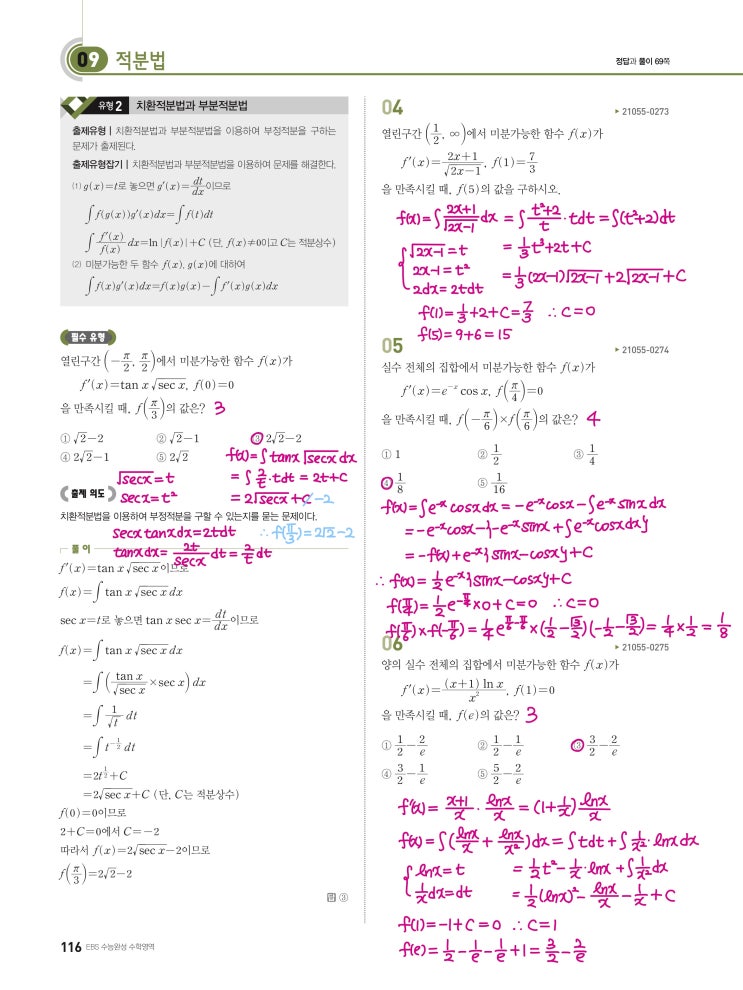 09 적분법
정답과 풀이 69쪽
유형 2 치환적분법과 부분적분법
출제유형 | 치환적분법과 부분적분법을 이용하여 부정적분을 구하는
문제가 출제된다.
출제유형잡기 | 치환적분법과 부분적분법을 이용하여 문제를 해결한다.
(1) g(x)=t로 놓으면 g'(x)=dt/dx이므로
∫f(g(x))g'(x)dx=∫f(t)dt
∫f'(x)/f(x) dx=ln|f(x)|+C (단, f(x)≠0이고 C는 적분상수)
(2) 미분가능한 두 함수 f(x), g(x)에 대하여
∫f(x)g'(x)dx=f(x)g(x)-∫f'(x)g(x)dx
필수 유형
열린구간 (-π/2, π/2)에서 미분가능한 함수 f(x)가
f'(x)=tan x√(sec x), f(0)=0
을 만족시킬 때, f(π/3)의 값은? 3
① √2-2 ② √2-1 ③ 2√2-2
④ 2√2-1 ⑤ 2√2
f(x)=∫tanx√(secx)dx
√(secx)=t
=∫2/t·tdt=2t+C
secx=t²
=2√(secx)+C -2
출제 의도
치환적분법을 이용하여 부정적분을 구할 수 있는지를 묻는 문제이다.
secxtanxdx=2tdt
∴f(π/3)=2√2-2
tanxdx=2t/secx dt=2/t dt
풀이
f'(x)=tan x√(sec x)이므로
f(x)=∫tan x√(sec x)dx
sec x=t로 놓으면 tan x sec x=dt/dx이므로
f(x)=∫tan x√(sec x)dx
=∫(tan x/√(sec x)×sec x)dx
=∫1/√t dt
=∫t^(-1/2) dt
=2t^(1/2)+C
=2√(sec x)+C (단, C는 적분상수)
f(0)=0이므로
2+C=0에서 C=-2
따라서 f(x)=2√(sec x)-2이므로
f(π/3)=2√2-2
답 ③
116 EBS 수능완성 수학영역
04
▶ 21055-0273
열린구간 (1/2, ∞)에서 미분가능한 함수 f(x)가
f'(x)=(2x+1)/√(2x-1), f(1)=7/3
을 만족시킬 때, f(5)의 값을 구하시오.
f(x)=∫(2x+1)/√(2x-1) dx=∫(t²+2)/t·tdt=∫(t²+2)dt
√(2x-1)=t
=1/3t³+2t+C
2x-1=t²
=1/3(2x-1)√(2x-1)+2√(2x-1)+C
2dx=2tdt
f(1)=1/3+2+C=7/3 ∴C=0
f(5)=9+6=15
05
▶ 21055-0274
실수 전체의 집합에서 미분가능한 함수 f(x)가
f'(x)=e^(-x) cos x, f(π/4)=0
을 만족시킬 때, f(-π/6)×f(π/6)의 값은? 4
① 1 ② 1/2 ③ 1/4
④ 1/8 ⑤ 1/16
f(x)=∫e^(-x)cosxdx=-e^(-x)cosx-∫e^(-x)sinxdx
=-e^(-x)cosx-{-e^(-x)sinx+∫e^(-x)cosxdx}
=-f(x)+e^(-x){sinx-cosx}+C
∴f(x)=1/2e^(-x){sinx-cosx}+C
f(π/4)=1/2e^(-π/4)×0+C=0 ∴C=0
f(π/6)×f(-π/6)=1/4e^(π/6-π/6)×(1/2-√3/2)(-1/2-√3/2)=1/4×1/2=1/8
06
▶ 21055-0275
양의 실수 전체의 집합에서 미분가능한 함수 f(x)가
f'(x)=(x+1)ln x/x², f(1)=0
을 만족시킬 때, f(e)의 값은? 3
① 1/2-2/e ② 1/2-1/e ③ 3/2-2/e
④ 3/2-1/e ⑤ 5/2-2/e
f'(x)=(x+1)/x·lnx/x=(1+1/x)lnx/x
f(x)=∫(lnx/x+lnx/x²)dx=∫tdt+∫1/x²·lnxdx
lnx=t
=1/2t²-1/x·lnx+∫1/x²dx
1/xdx=dt
=1/2(lnx)²-lnx/x-1/x+C
f(1)=-1+C=0 ∴C=1
f(e)=1/2-1/e-1/e+1=3/2-2/e